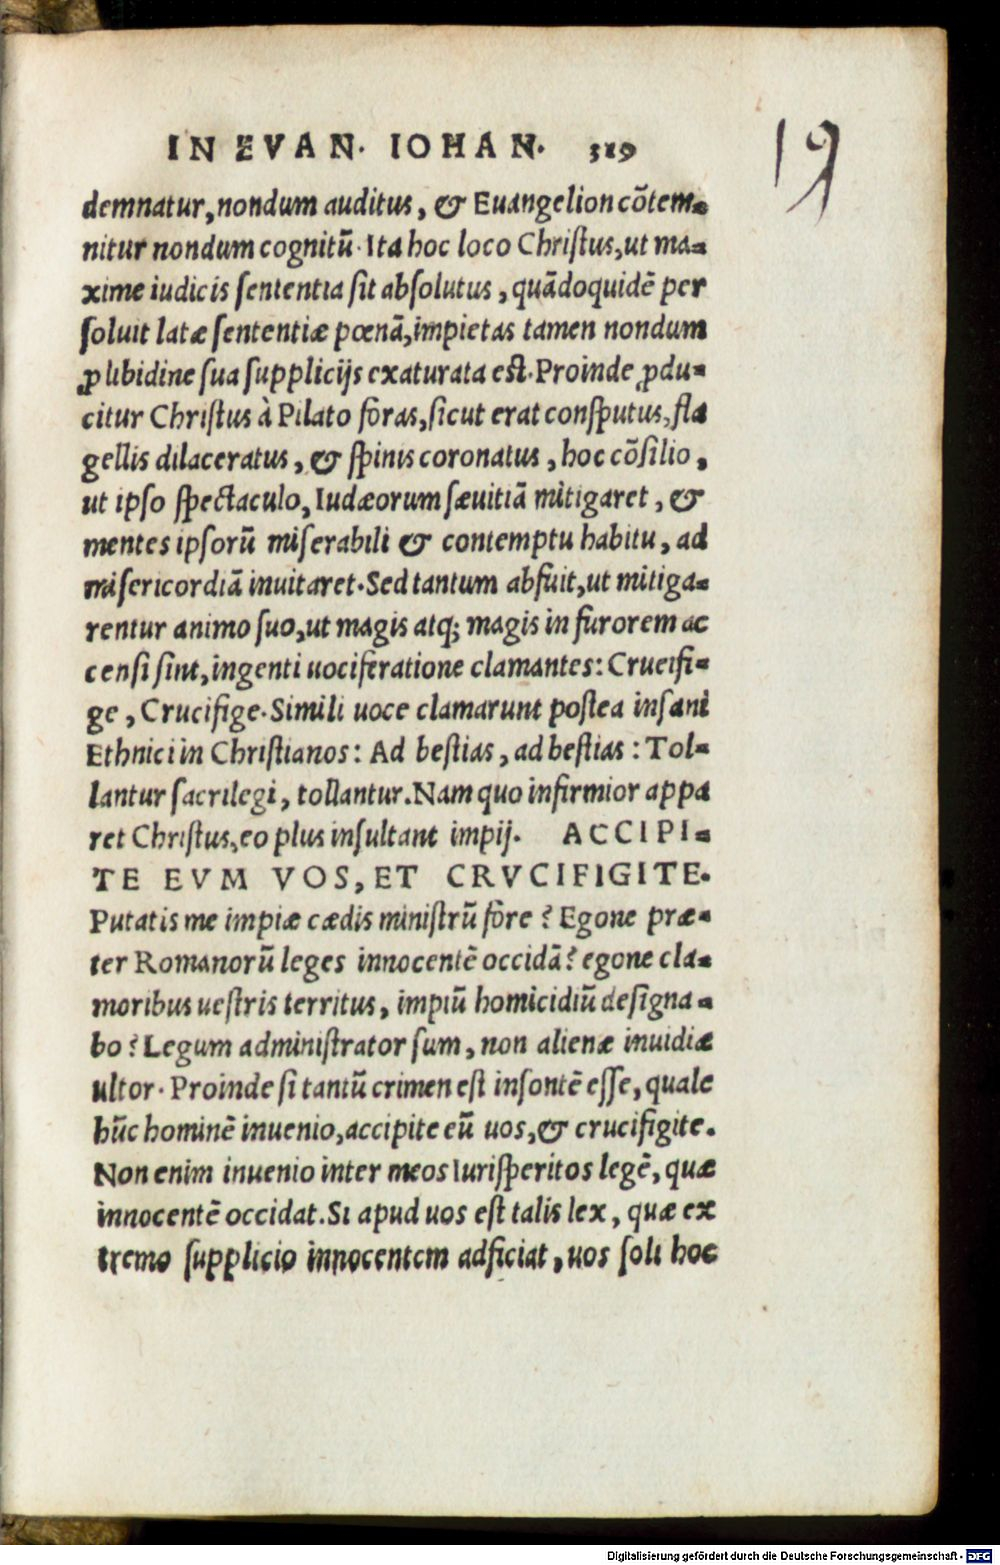 IN EVAN. IOHAN. 319
19
demnatur, nondum auditus, & Euangelion cõtem-
nitur nondum cognitũ. Ita hoc loco Christus, ut ma-
xime iudicis sententia sit absolutus, quãdoquidẽ per
soluit latæ sententiæ pœnã, impietas tamen nondum
ꝓ libidine sua supplicijs exaturata est. Proinde ꝓdu-
citur Christus à Pilato foras, sicut erat consputus, fla
gellis dilaceratus, & spinis coronatus, hoc cõsilio,
ut ipso spectaculo, Iudæorum sæuitiã mitigaret, &
mentes ipsorũ miserabili & contemptu habitu, ad
misericordiã inuitaret. Sed tantum abfuit, ut mitiga-
rentur animo suo, ut magis atq; magis in furorem ac
censi sint, ingenti uociferatione clamantes: Crucifi-
ge, Crucifige. Simili uoce clamarunt postea insani
Ethnici in Christianos: Ad bestias, ad bestias: Tol-
lantur sacrilegi, tollantur. Nam quo infirmior appa
ret Christus, eo plus insultant impij. ACCIPI-
TE EVM VOS, ET CRVCIFIGITE.
Putatis me impiæ cædis ministrũ fore? Egone præ-
ter Romanorũ leges innocentẽ occidã? egone cla-
moribus uestris territus, impiũ homicidiũ designa-
bo? Legum administrator sum, non alienæ inuidiæ
ultor. Proinde si tantũ crimen est insontẽ esse, quale
hũc hominẽ inuenio, accipite eũ uos, & crucifigite.
Non enim inuenio inter meos Iurisperitos legẽ, quæ
innocentẽ occidat. Si apud uos est talis lex, quæ ex
tremo supplicio innocentem adficiat, uos soli hoc
Digitalisierung gefördert durch die Deutsche Forschungsgemeinschaft - DFG